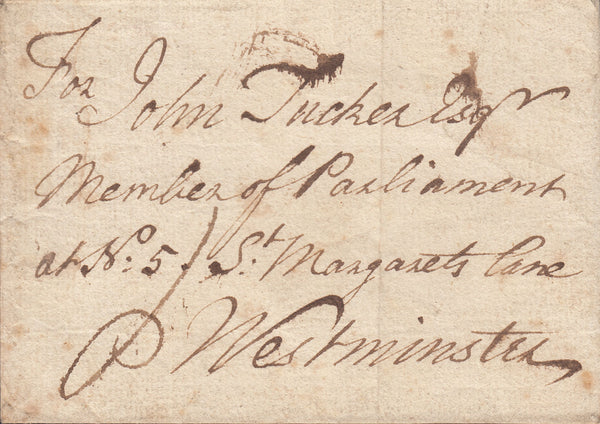 For John Tucker Esqr
Member of Parliament
at No. 5. St. Margarets Lane
Westminster